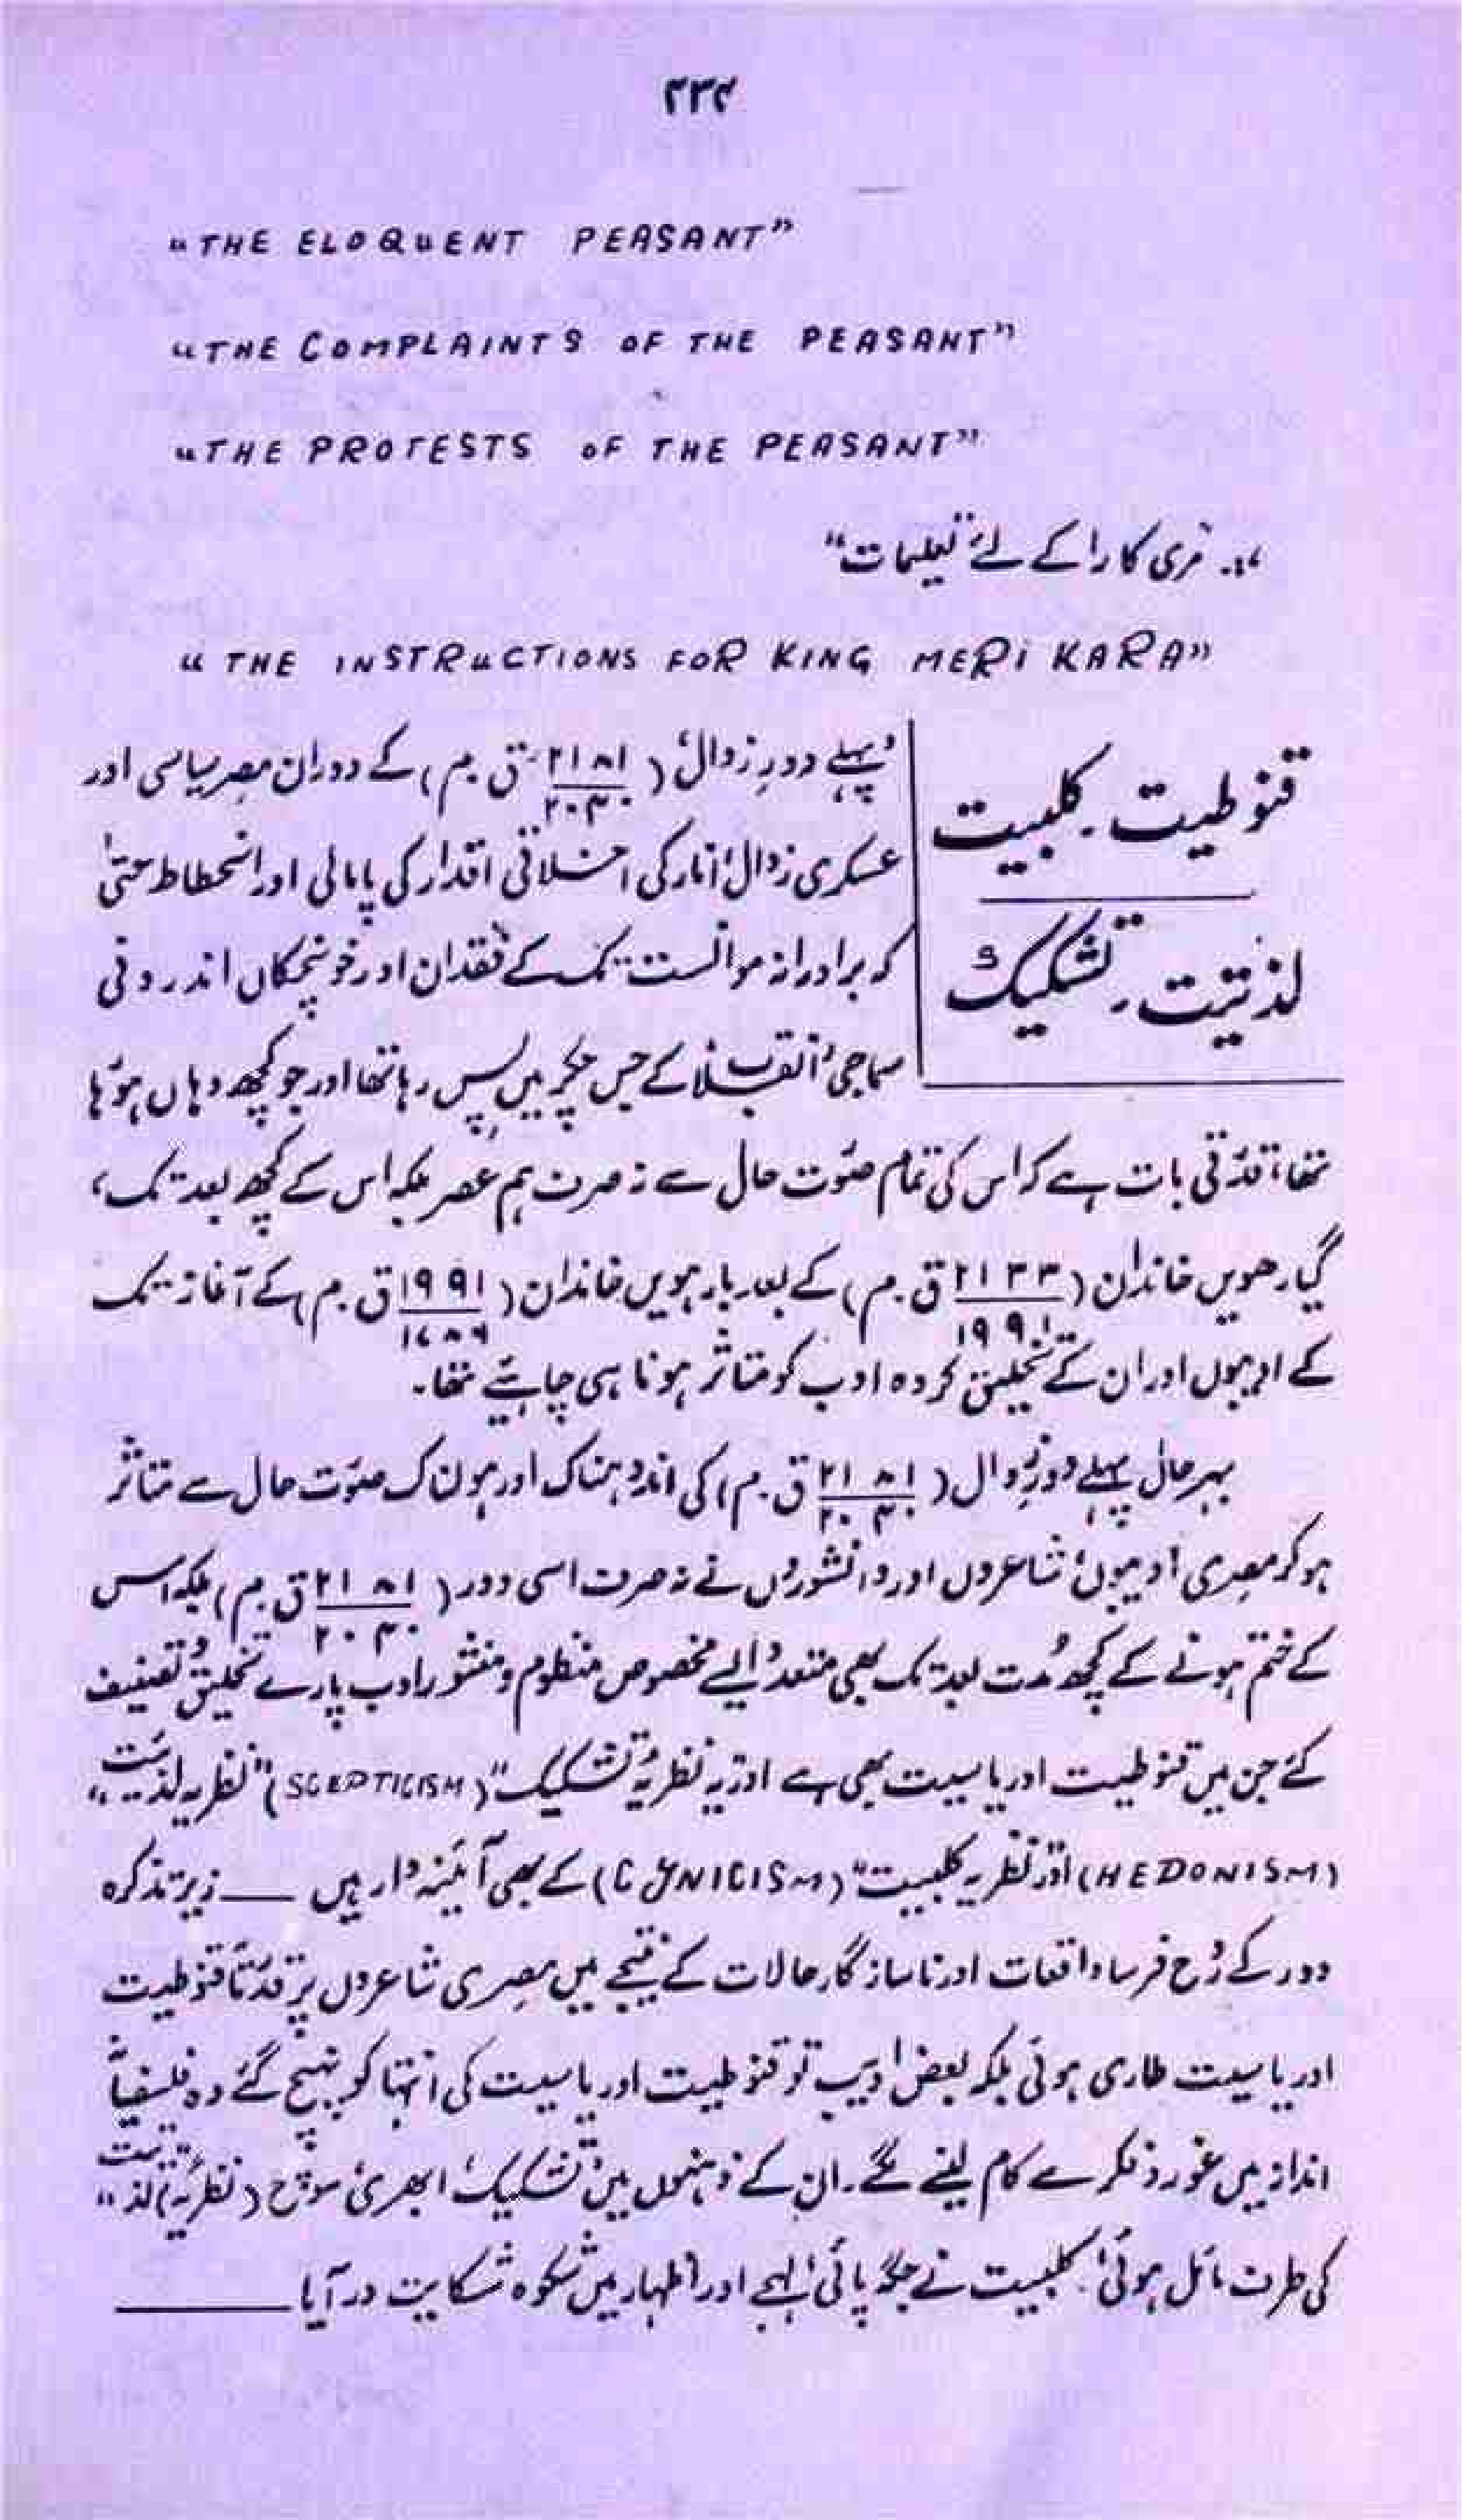 ۲۳۴
"THE ELOQUENT PEASANT"
"THE COMPLAINTS OF THE PEASANT"
"THE PROTESTS OF THE PEASANT"
"مری کارا کے لئے تعلیمات"
"THE INSTRUCTIONS FOR KING MERI KARA"
قنوطیت۔ کلبیت
لذتیت۔ تشکیک
'پہلے دورِ زوال' (۲۱۸۱/۲۰۴۰ ق.م) کے دوران مصر سیاسی اور
عسکری زوال، انارکی، اخلاقی اقدار کی پامالی اور انحطاط حتیٰ
کہ برادرانہ موانست تک کے فقدان اور خونچکاں اندرونی
سماجی انقلاب کے جس چکر میں پس رہا تھا اور جو کچھ وہاں ہو رہا
تھا، قدرتی بات ہے کہ اس کی تمام صورت حال سے نہ صرف ہم عصر بلکہ اس کے کچھ بعد تک،
گیارھویں خاندان (۲۱۳۳/۱۹۹۱ ق.م) کے بعد بارہویں خاندان (۱۹۹۱/۱۷۸۶ ق.م) کے آغاز تک
کے ادیبوں اور ان کے تخلیق کردہ ادب کو متاثر ہونا ہی چاہیئے تھا۔
بہرحال پہلے دورِ زوال (۲۱۸۱/۲۰۴۰ ق.م) کی اندوہناک اور ہولناک صورت حال سے متاثر
ہو کر مصری ادیبوں، شاعروں اور دانشوروں نے نہ صرف اسی دور (۲۱۸۱/۲۰۴۰ ق.م) بلکہ اس
کے ختم ہونے کے کچھ مدت بعد تک بھی متعدد ایسے مخصوص منظوم و منثور ادب پارے تخلیق و تصنیف
کئے جن میں قنوطیت اور یاسیت بھی ہے اور یہ نظریۂ تشکیک" (SCEPTICISM) "نظریہ لذتیت"
(HEDONISM) اور "نظریہ کلبیت" (CYNICISM) کے بھی آئینہ دار ہیں ـــــ زیر تذکرہ
دور کے رُوح فرسا واقعات اور ناسازگار حالات کے نتیجے میں مصری شاعروں پر قدرتاً قنوطیت
اور یاسیت طاری ہوئی بلکہ بعض ادیب تو قنوطیت اور یاسیت کی انتہا کو پہنچ گئے وہ
انداز میں غور و فکر سے کام لینے لگے۔ ان کے ذہنوں میں 'تشکیک' ابھری، سوچ (نظریہ) لذتیت"
کی طرف مائل ہوئی، کلبیت نے جگہ پائی، لہجے اور اظہار میں شکوہ شکایت در آیا ـــــ